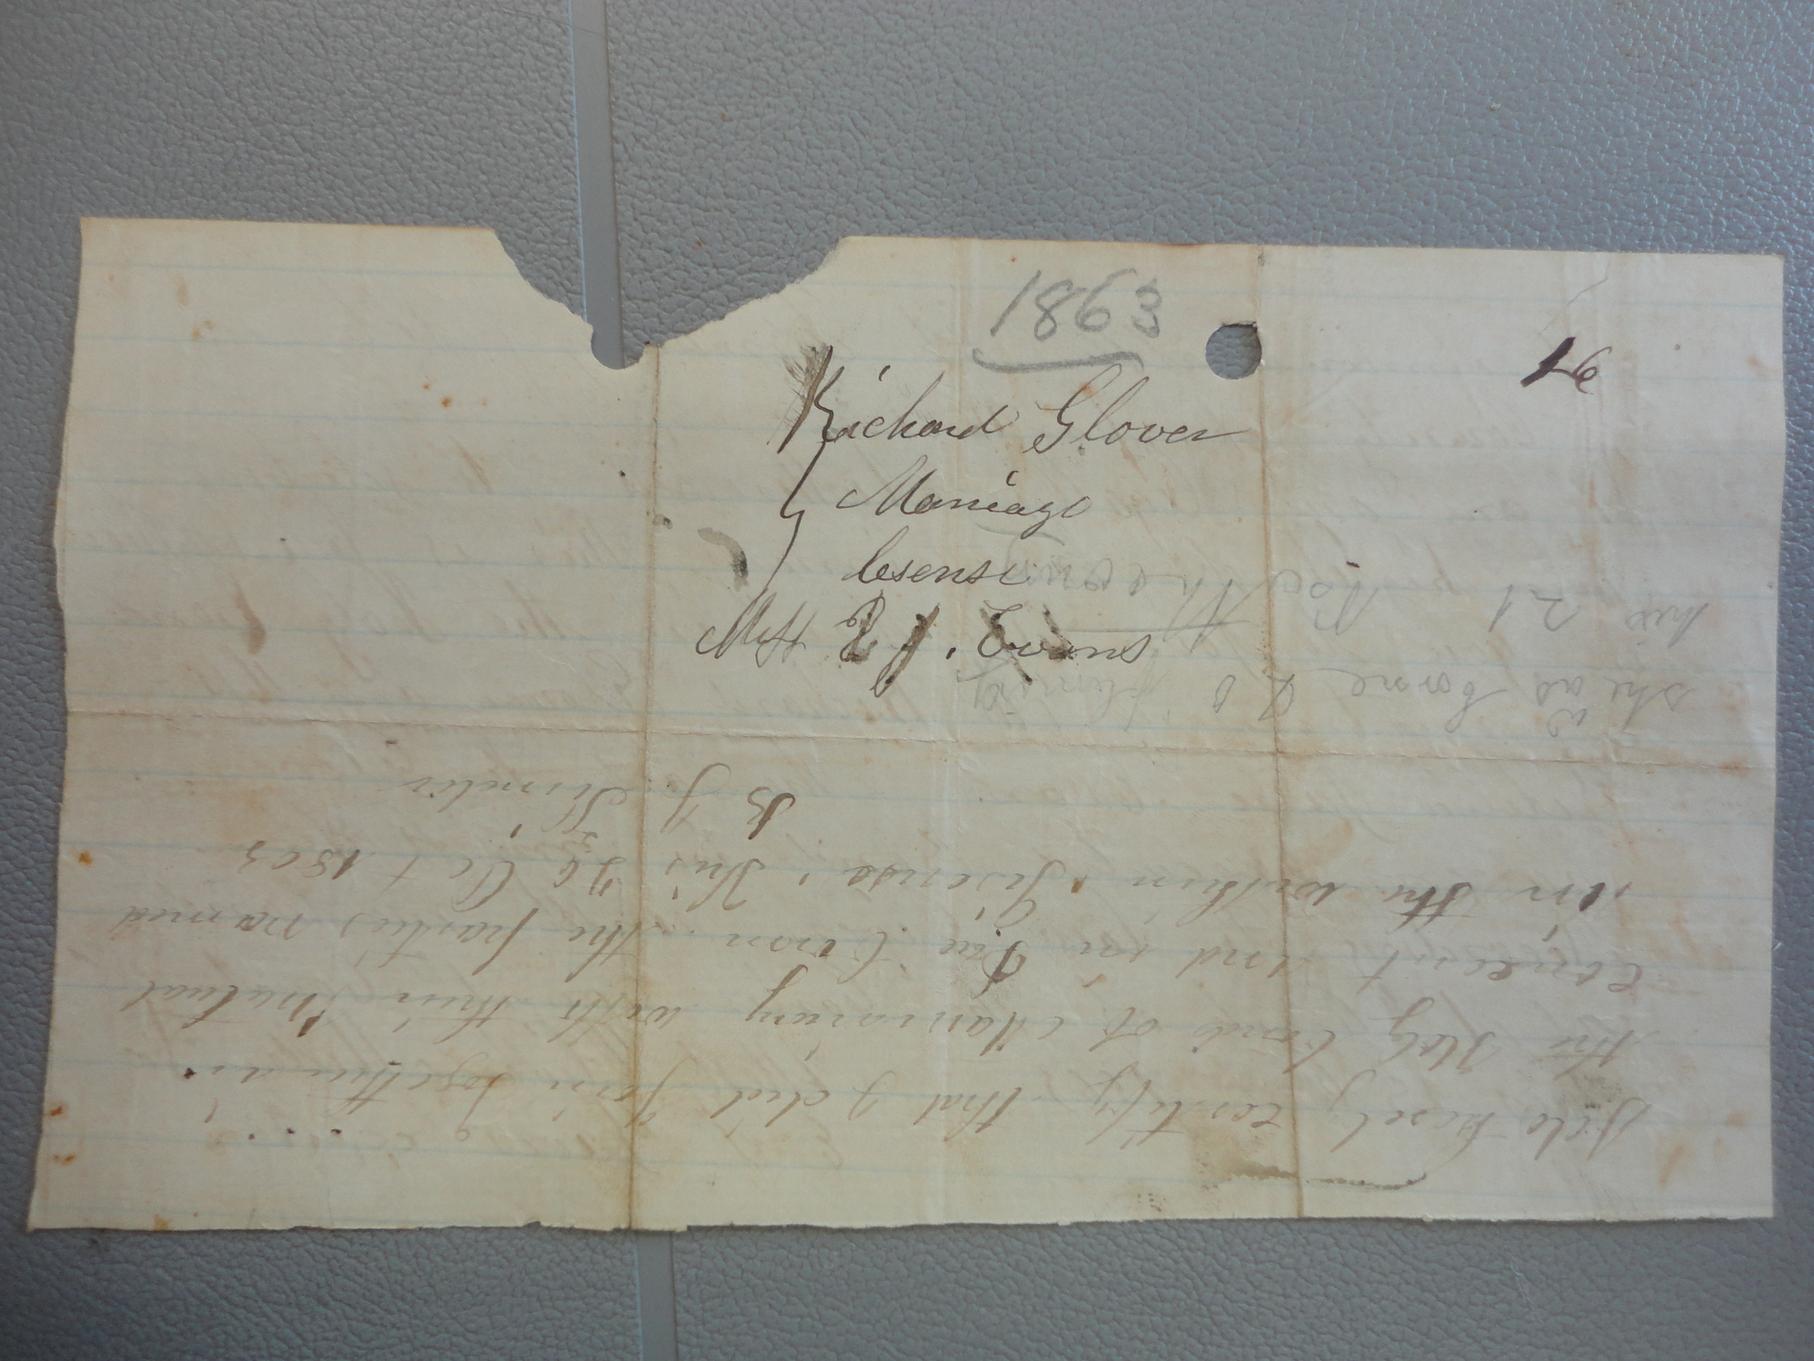 1863
16
Richard Glover
Marriage
lesense
E J. Evans
she as borne
his 21
I do hearby certify that I did join together in
the Holy bonds of Matrimony with their Mutual
concent and in Due Form the parties named
in the within Lisense. This 26 Oct 1863
B J